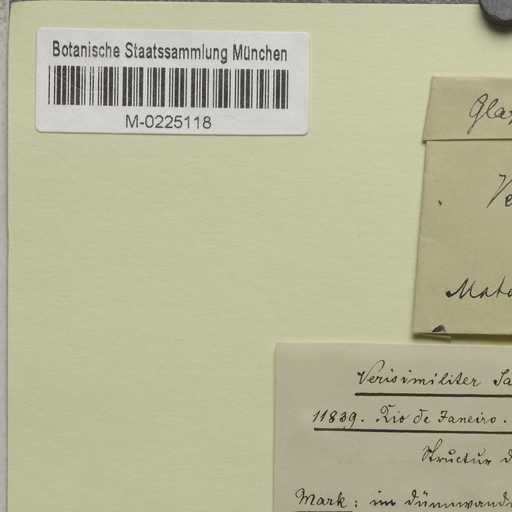 Botanische Staatssammlung München
M-0225118
Verisimiliter
11839. Rio de Janeiro.
Structur d
Mark: im dünnwand